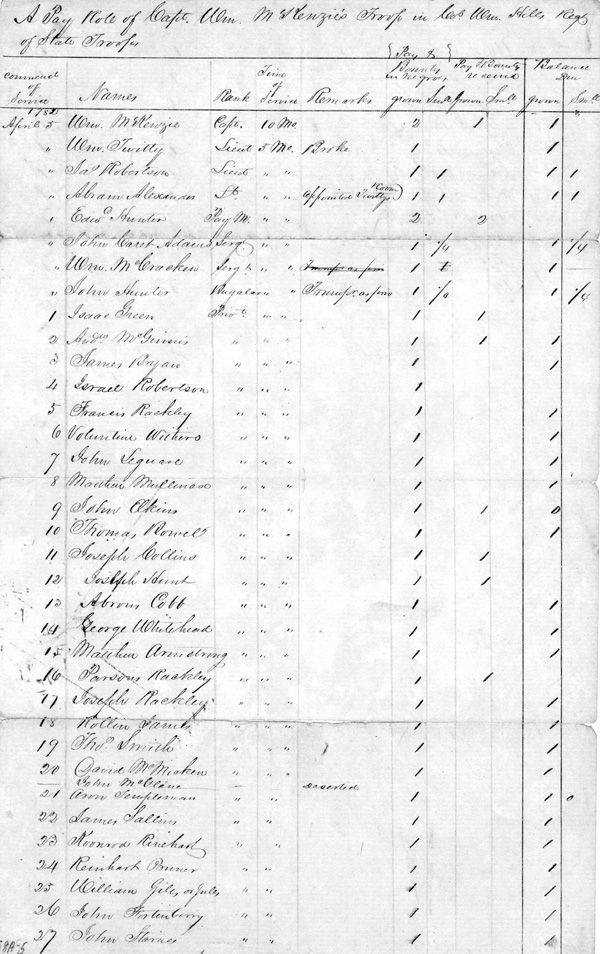 A Pay Role of Capt. Wm. McKenzie's Troop in Col. Wm. Hills Regt
of State Troops
Commenct of Service Names Rank Time of Service Remarks Pay & Bounty in negros Pay & Bounty received Balance due
grown Small grown Small grown Small
1782
April 5 Wm. McKenzie Capt. 10 Mo. 2 1 1
" Wm. Twitty Lieut 5 Mo. Broke 1 1
" Jas Robertson Lieut " " 1 1 1 1
" Abram Alexander Lt. " " appointed Twittys Room 1 1 1 1
" Edwd Hunter Pay M. " " 2 2
" John Caret Adams Serg " " 1 1/4 1 1/4
" Wm. McCracken Sergt " " 1 1 1
" John Hunter Bugalar " " Trump. as priv 1 1/4 1 1/4
1 Isaac Green Privt " " 1 1
2 Andw McGinnis " " " 1 1 1
3 James Bryan " " " 1 1
4 Israel Robertson " " " 1
5 Francis Rackley " " " 1 1
6 Voluntine Withers " " " 1 1
7 John Leguare " " " 1 1
8 Matthew Mullenax " " " 1 1
9 John Akins " " " 1 1 0
10 Thomas Rowel " " " 1 1
11 Joseph Collins " " " 1 1
12 Joseph Hunt " " " 1 1
13 Abrom Cobb " " " 1 1
14 George Whitehead " " " 1 1
15 Matthew Armstrong " " " 1 1
16 Parsons Rackley " " " 1 1
17 Joseph Rackley " " " 1 1
18 Rollin James " " " 1 1
19 Thos. Smith " " " 1 1
20 David McMicken " " " 1 1
— John McClane — " deserted
21 Aron Templeman " " 1 1 0
22 James Tallins " " " 1 1
23 Koonrod Rinehart " " " 1 1
24 Reinhart Pruner " " " 1 1
25 William Giles or Jules " " 1 1
26 John Fortenberry " " " 1 1
27 John Starnes " " " 1 1